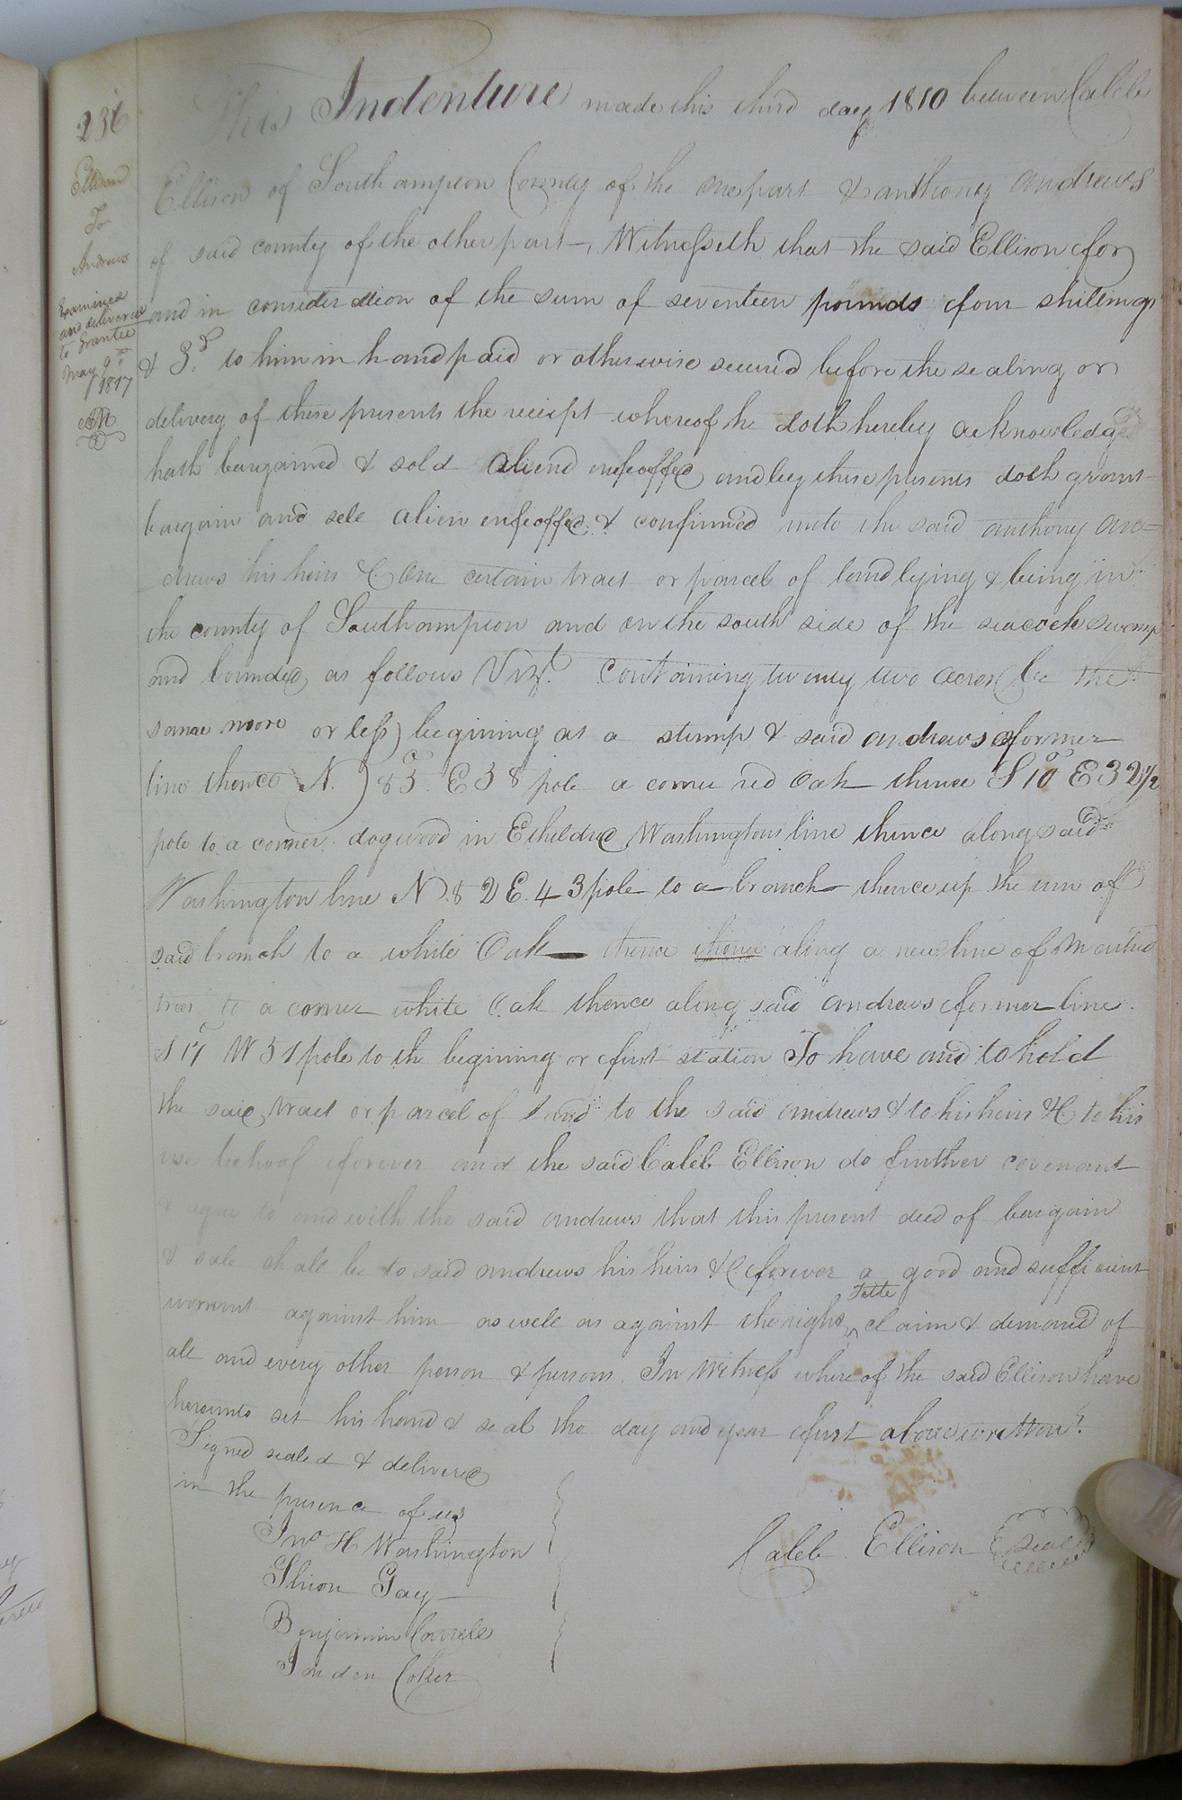 236
Ellison
To
Andrews
Examined
and delivered
to Grantee
May 9th
1817
This Indenture made this third day 1810 between Caleb
Ellison of Southampton County of the one part & anthoney andrews
of said county of the other part, Witnesseth that the said Ellison for
and in consideration of the sum of seventeen pounds four shillings
& 3d. to him in hand paid or otherwise secured before the sealing or
delivery of these presents the receipt whereof he doth hereby acknowledge
hath bargained & sold aliend enfeoffed and by these presents doth grant
bargain and sell alien enfeoffed & confirmed unto the said anthony an=
drews his heirs &C one certain tract or parcel of land lying & being in
the county of Southampton and on the south side of the seacock swamp
and bounded as follows Vizt. Containing twenty two acres (be the
same more or less) begining at a stump & said andrews former
line thence N. 85 E 38 pole a corner red Oak thence S 10° E 32 1/2
pole to a corner dogwood in Etheldred Washingtons line thence along said
Washington line N. 82 E. 43 pole to a branch thence up the run of
said branch to a white Oak — thence thence along a new line of Marked
trees to a corner white Oak thence along said andrews former line
S 17 W 51 pole to the begining or first station To have and to hold
the said tract or parcel of land to the said andrews & to his heirs &C to his
use behoof forever and the said Caleb Ellison do further covenant
& agree to and with the said andrews that this present deed of bargain
& sale shall be to said andrews his heirs &C forever a good and sufficient
warrant against him as well as against the right title claim & demand of
all and every other person & persons. In Witness where of the said Ellison have
hereunto set his hand & seal the day and year first above written.
Signed sealed & delivered
in the presence of us
Jno H Washington
Gay
Benjamin Correll
Jorden Coker
Caleb Ellison Seal